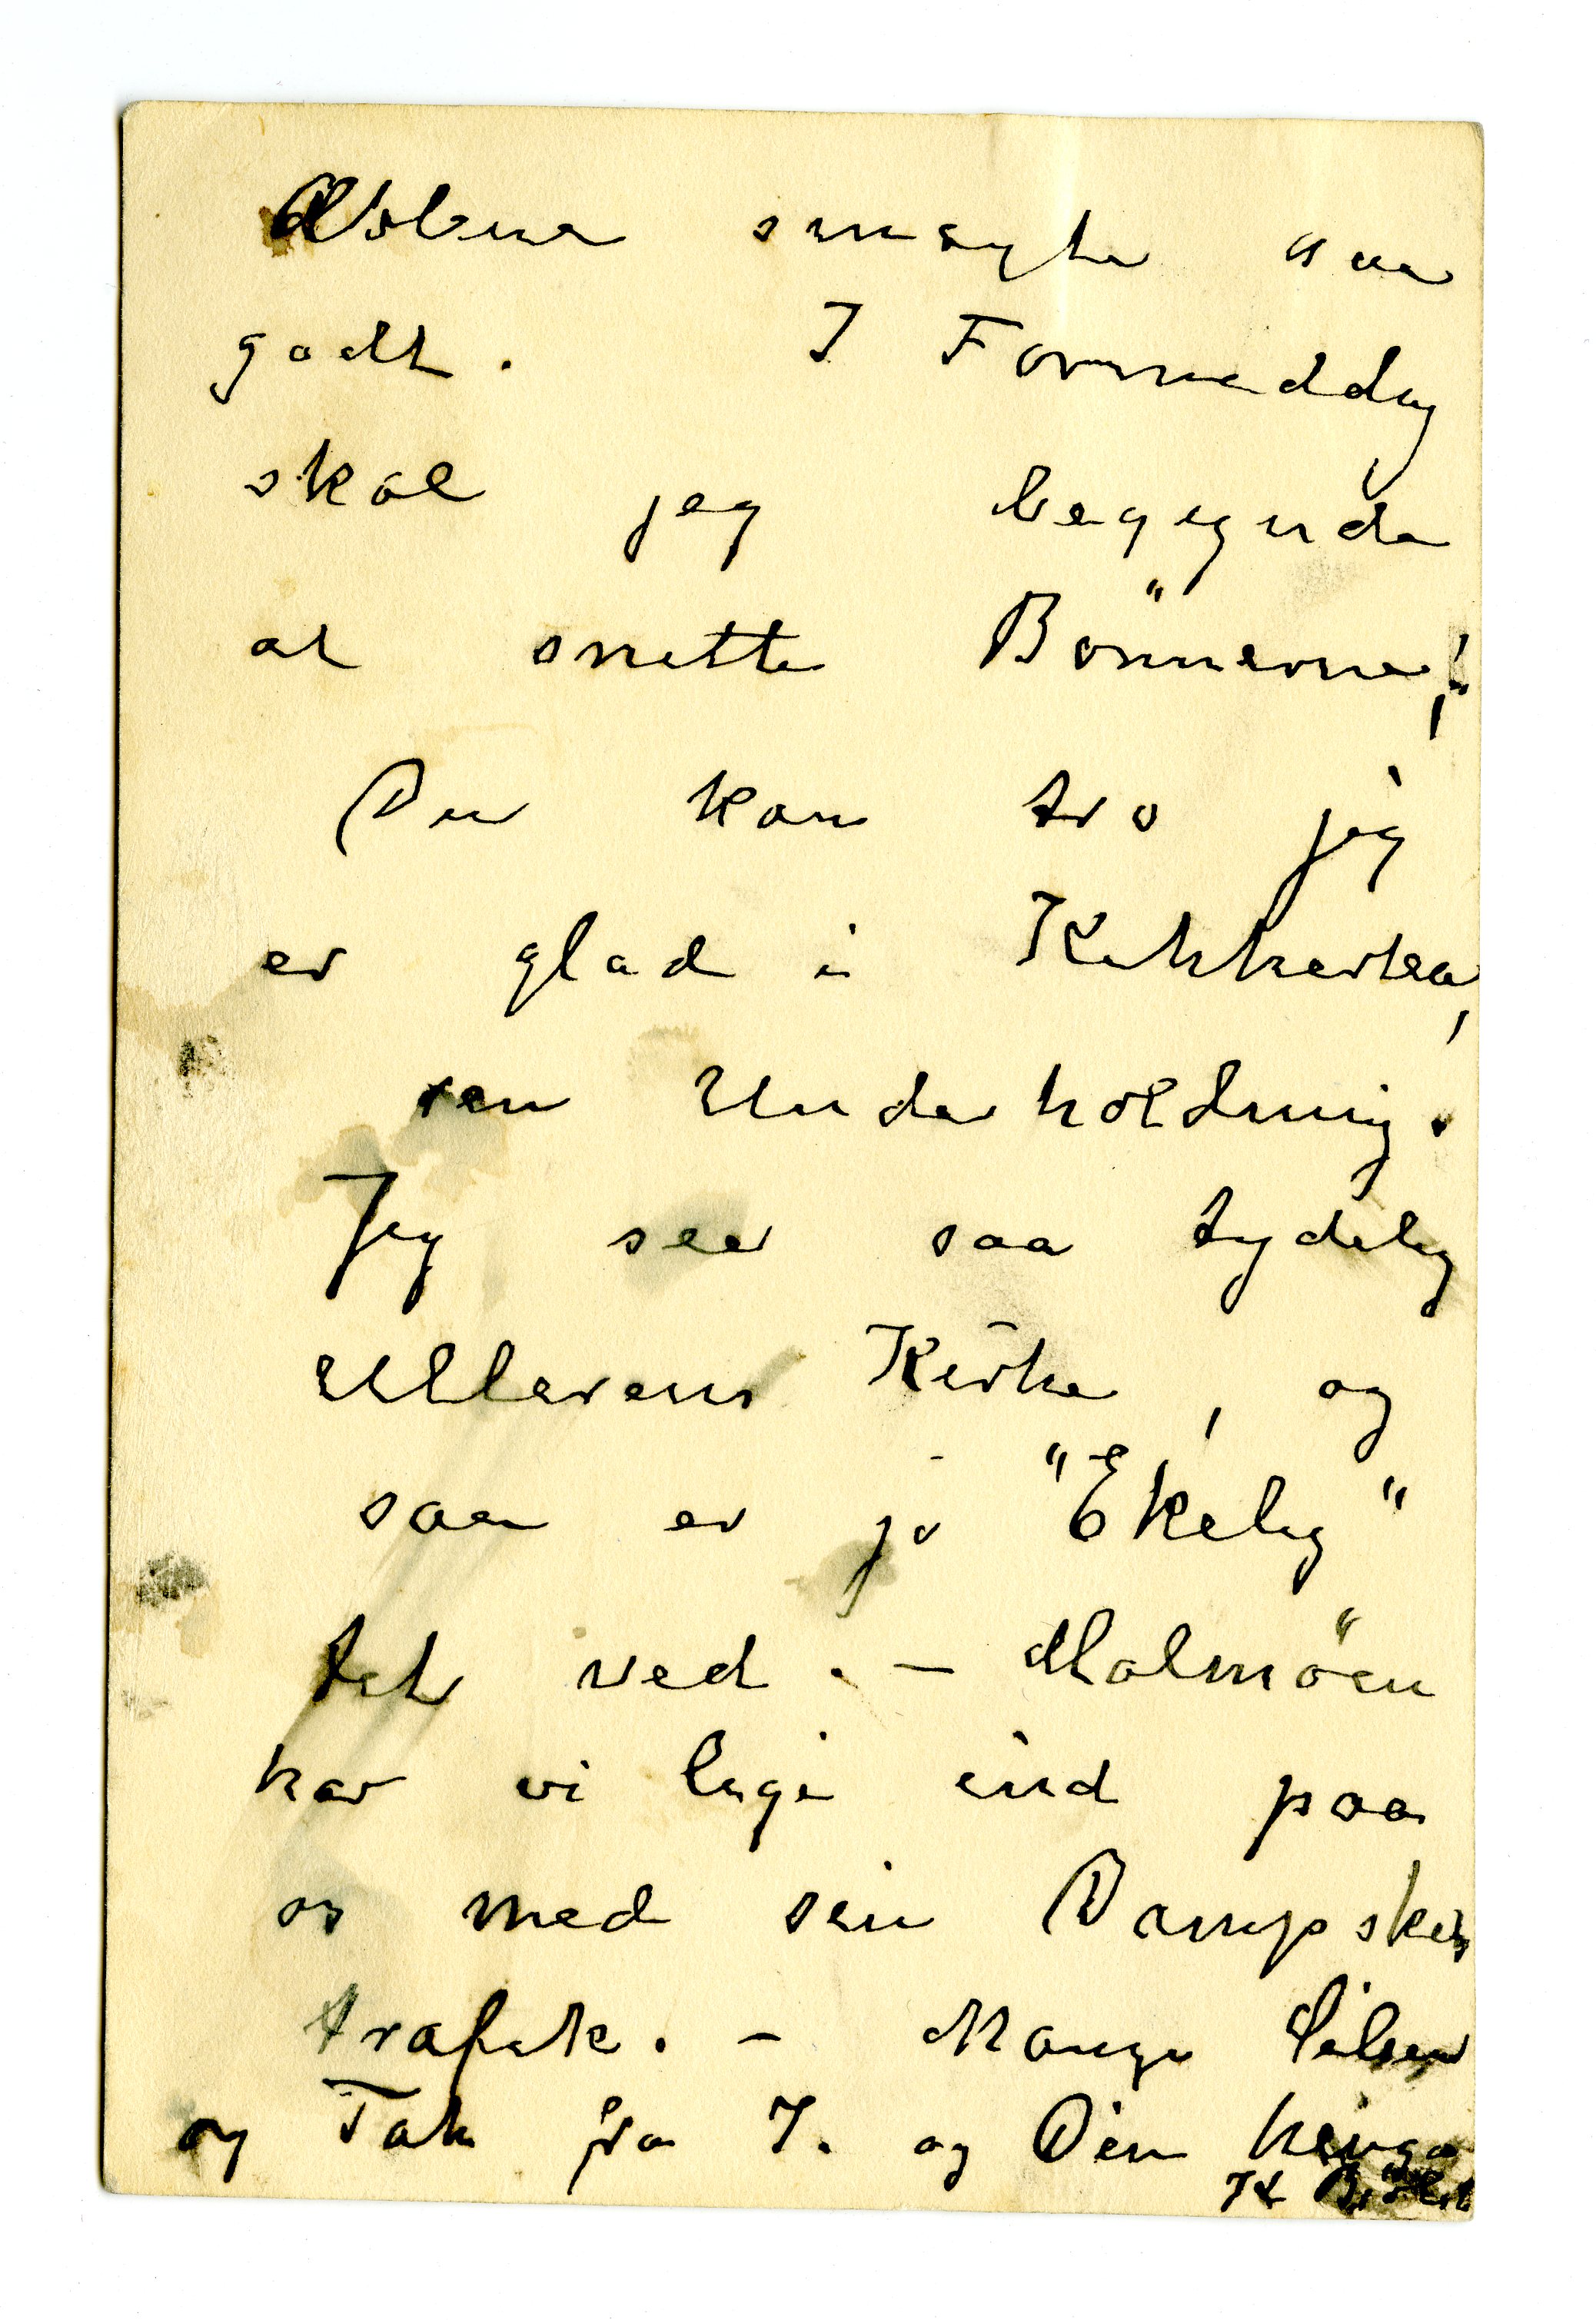 Æblene smagte saa
godt. I Formiddag
skal jeg begynde
at snitte Bönnerne!
Du kan tro jeg
er glad i Kikkerten,
en Underholdning.
Jeg seer saa tydelig
Ullerens Kirke, og
saa er jo "Ekely"
tet ved. - Malmöen
har vi lige ind paa
os med sin Dampskibs
trafik. - Mange Hilsen
og Tak fra I. og Din